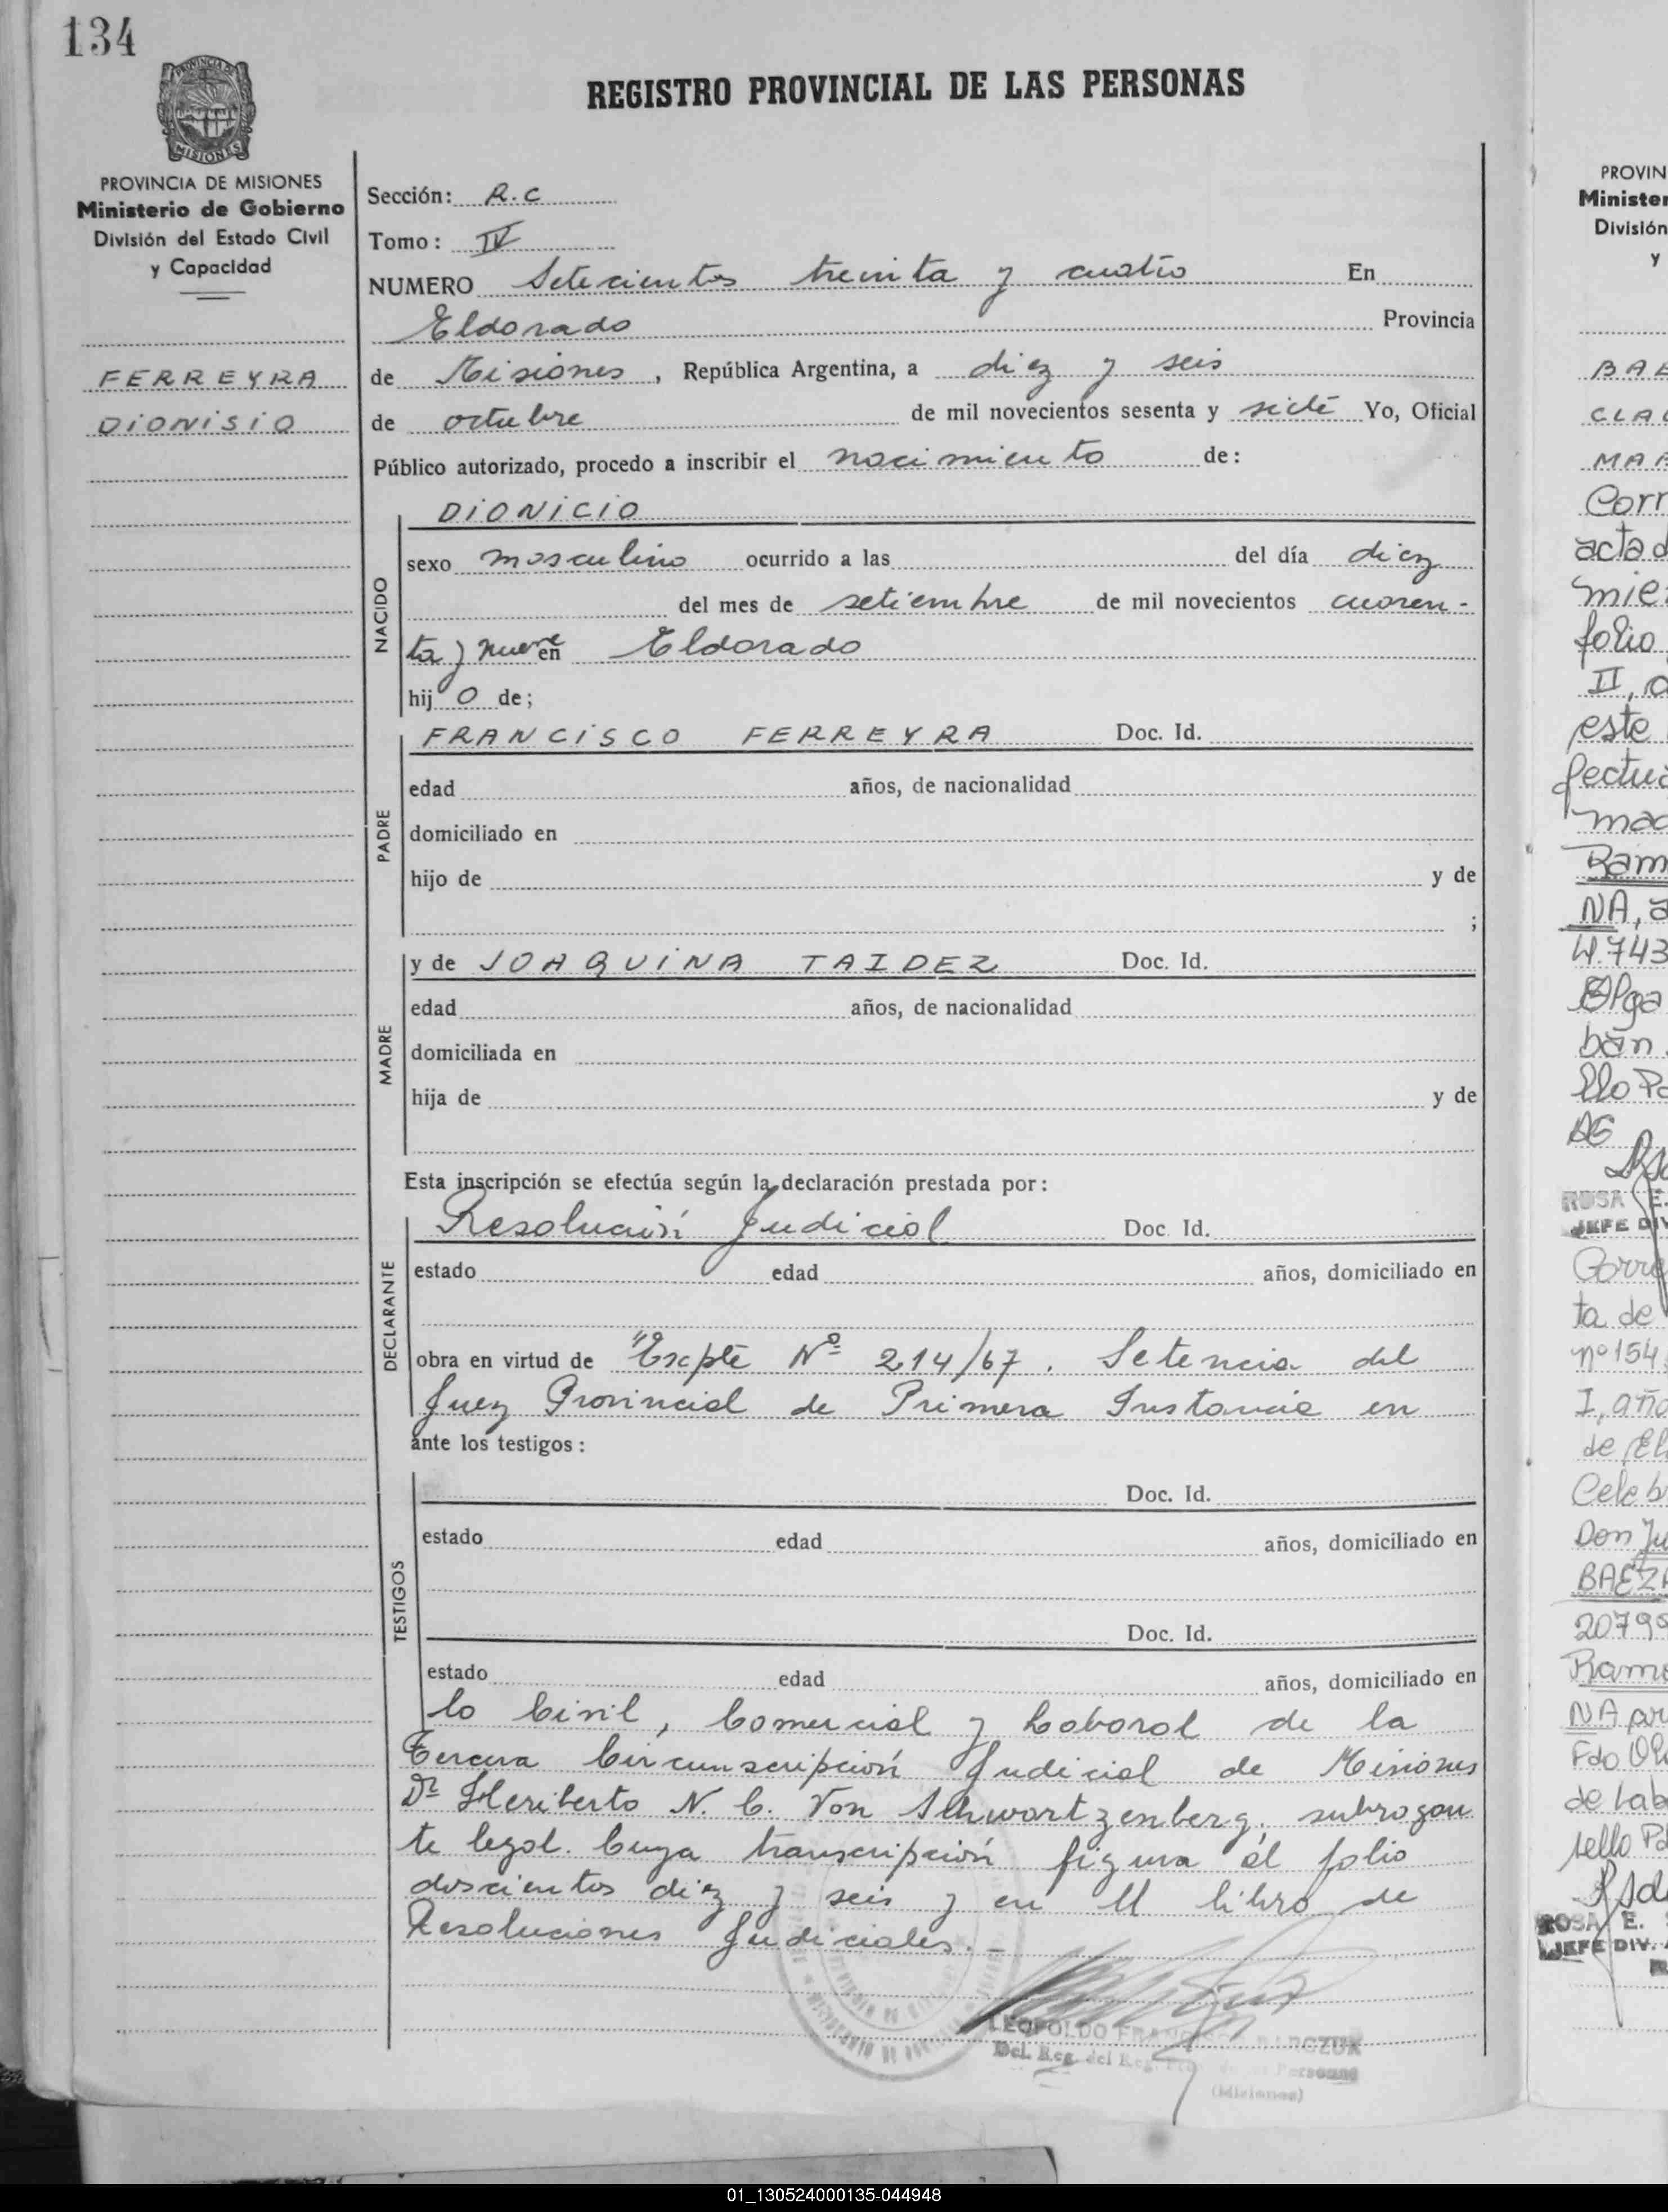 134
REGISTRO PROVINCIAL DE LAS PERSONAS
MISIONES
PROVINCIA DE MISIONES
Ministerio de Gobierno
División del Estado Civil
y Capacidad
FERREYRA
DIONISIO
Sección: R.C
Tomo: IV
NUMERO Setecientos treinta y cuatro En
Eldorado Provincia
de Misiones, República Argentina, a diez y seis
de octubre de mil novecientos sesenta y siete Yo, Oficial
Público autorizado, procedo a inscribir el nacimiento de:
NACIDO
DIONICIO
sexo masculino ocurrido a las del día diez
del mes de setiembre de mil novecientos cuaren-
ta y nueve en Eldorado
hij o de;
PADRE
FRANCISCO FERREYRA Doc. Id.
edad años, de nacionalidad
domiciliado en
hijo de y de
;
MADRE
y de JOAQUINA TAIDEZ Doc. Id.
edad años, de nacionalidad
domiciliada en
hija de y de
Esta inscripción se efectúa según la declaración prestada por:
DECLARANTE
Resolución Judicial Doc. Id.
estado edad años, domiciliado en
obra en virtud de Expte Nº 214/67. Setencia del
Juez Provincial de Primera Instancia en
ante los testigos:
TESTIGOS
Doc. Id.
estado edad años, domiciliado en
Doc. Id.
estado edad años, domiciliado en
lo Civil, Comercial y Laboral de la
Tercera Circunscripción Judicial de Misiones
Dr Heriberto N. C. Von Schwartzenberg, subrogan
te legal. Cuya transcripción figura al folio
doscientos diez y seis y en el libro de
Resoluciones Judiciales.-
LEOPOLDO FRANCISCO BARCZUK
Del. Reg. del Reg. Personas
(Misiones)
PROVIN
Minister
División
y
BAE
CLAU
MAR
Corr
acta d
mie
folio
II, a
este
fectua
mad
Ram
NA, a
4.743
Olga
ban
llo Po
AG
ROSA E.
JEFE DIV
Corre
ta de
nº 154
I, año
de El
Celeb
Don Ju
BAEZ
20799
Ramo
NA por
Fdo Ol
de Lab
sello Po
ROSA E.
JEFE DIV.
01_130524000135-044948